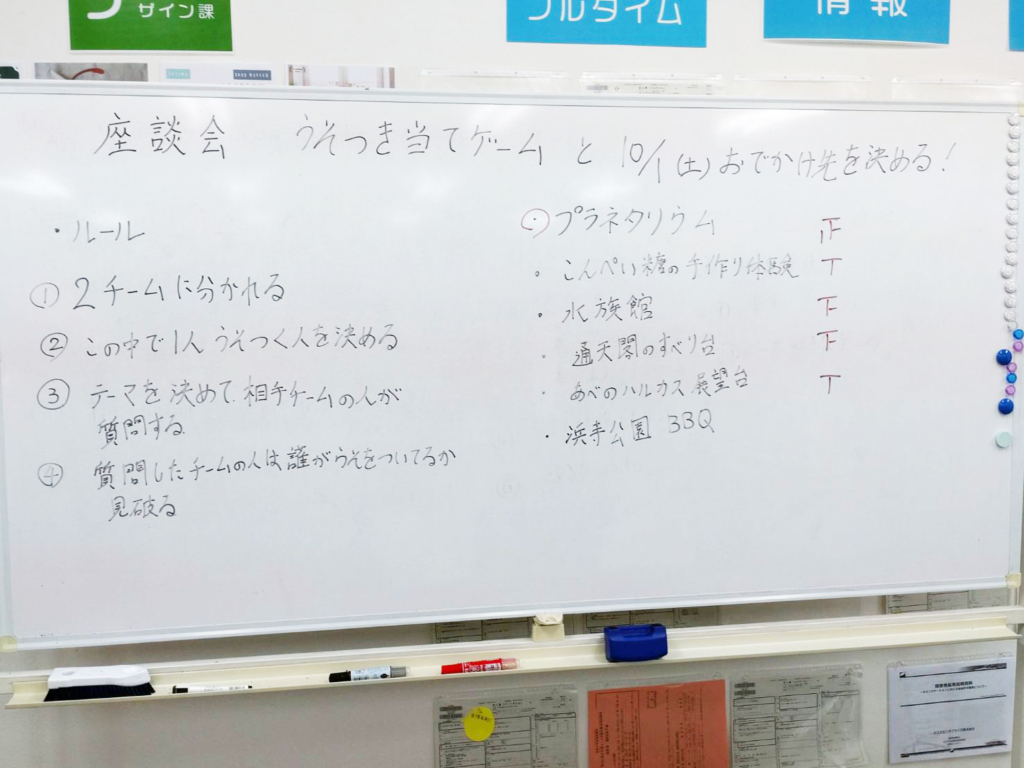 サイン課
フルタイム
情報
座談会 うそつき当てゲーム と 10/1(土)おでかけ先を決める!
・ルール
① 2チームに分かれる
② この中で1人うそつく人を決める
③ テーマを決めて、相手チームの人が
質問する
④ 質問したチームの人は誰がうそをついてるか
見破る
・プラネタリウム 正
・こんぺい糖の手作り体験 T
・水族館 下
・通天閣のすべり台 下
・あべのハルカス展望台 T
・浜寺公園 BBQ